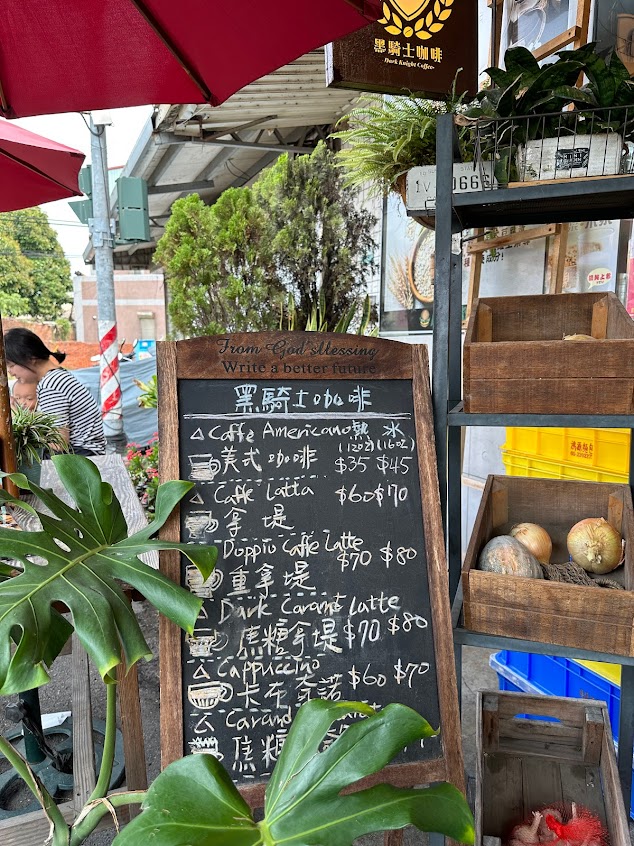 黑騎士咖啡
Dark Knight Coffee
From God's Blessing
Write a better future
黑騎士咖啡
△Caffe Americano 熱 冰
(12oz)(16oz)
美式咖啡 $35 $45
△Caffe Latta $60 $70
拿堤
Doppio Caffe Latte $70 $80
重拿堤
△Dark Caramel Latte
焦糖拿堤 $70 $80
△Cappuccino
卡布奇諾 $60 $70
△
焦糖